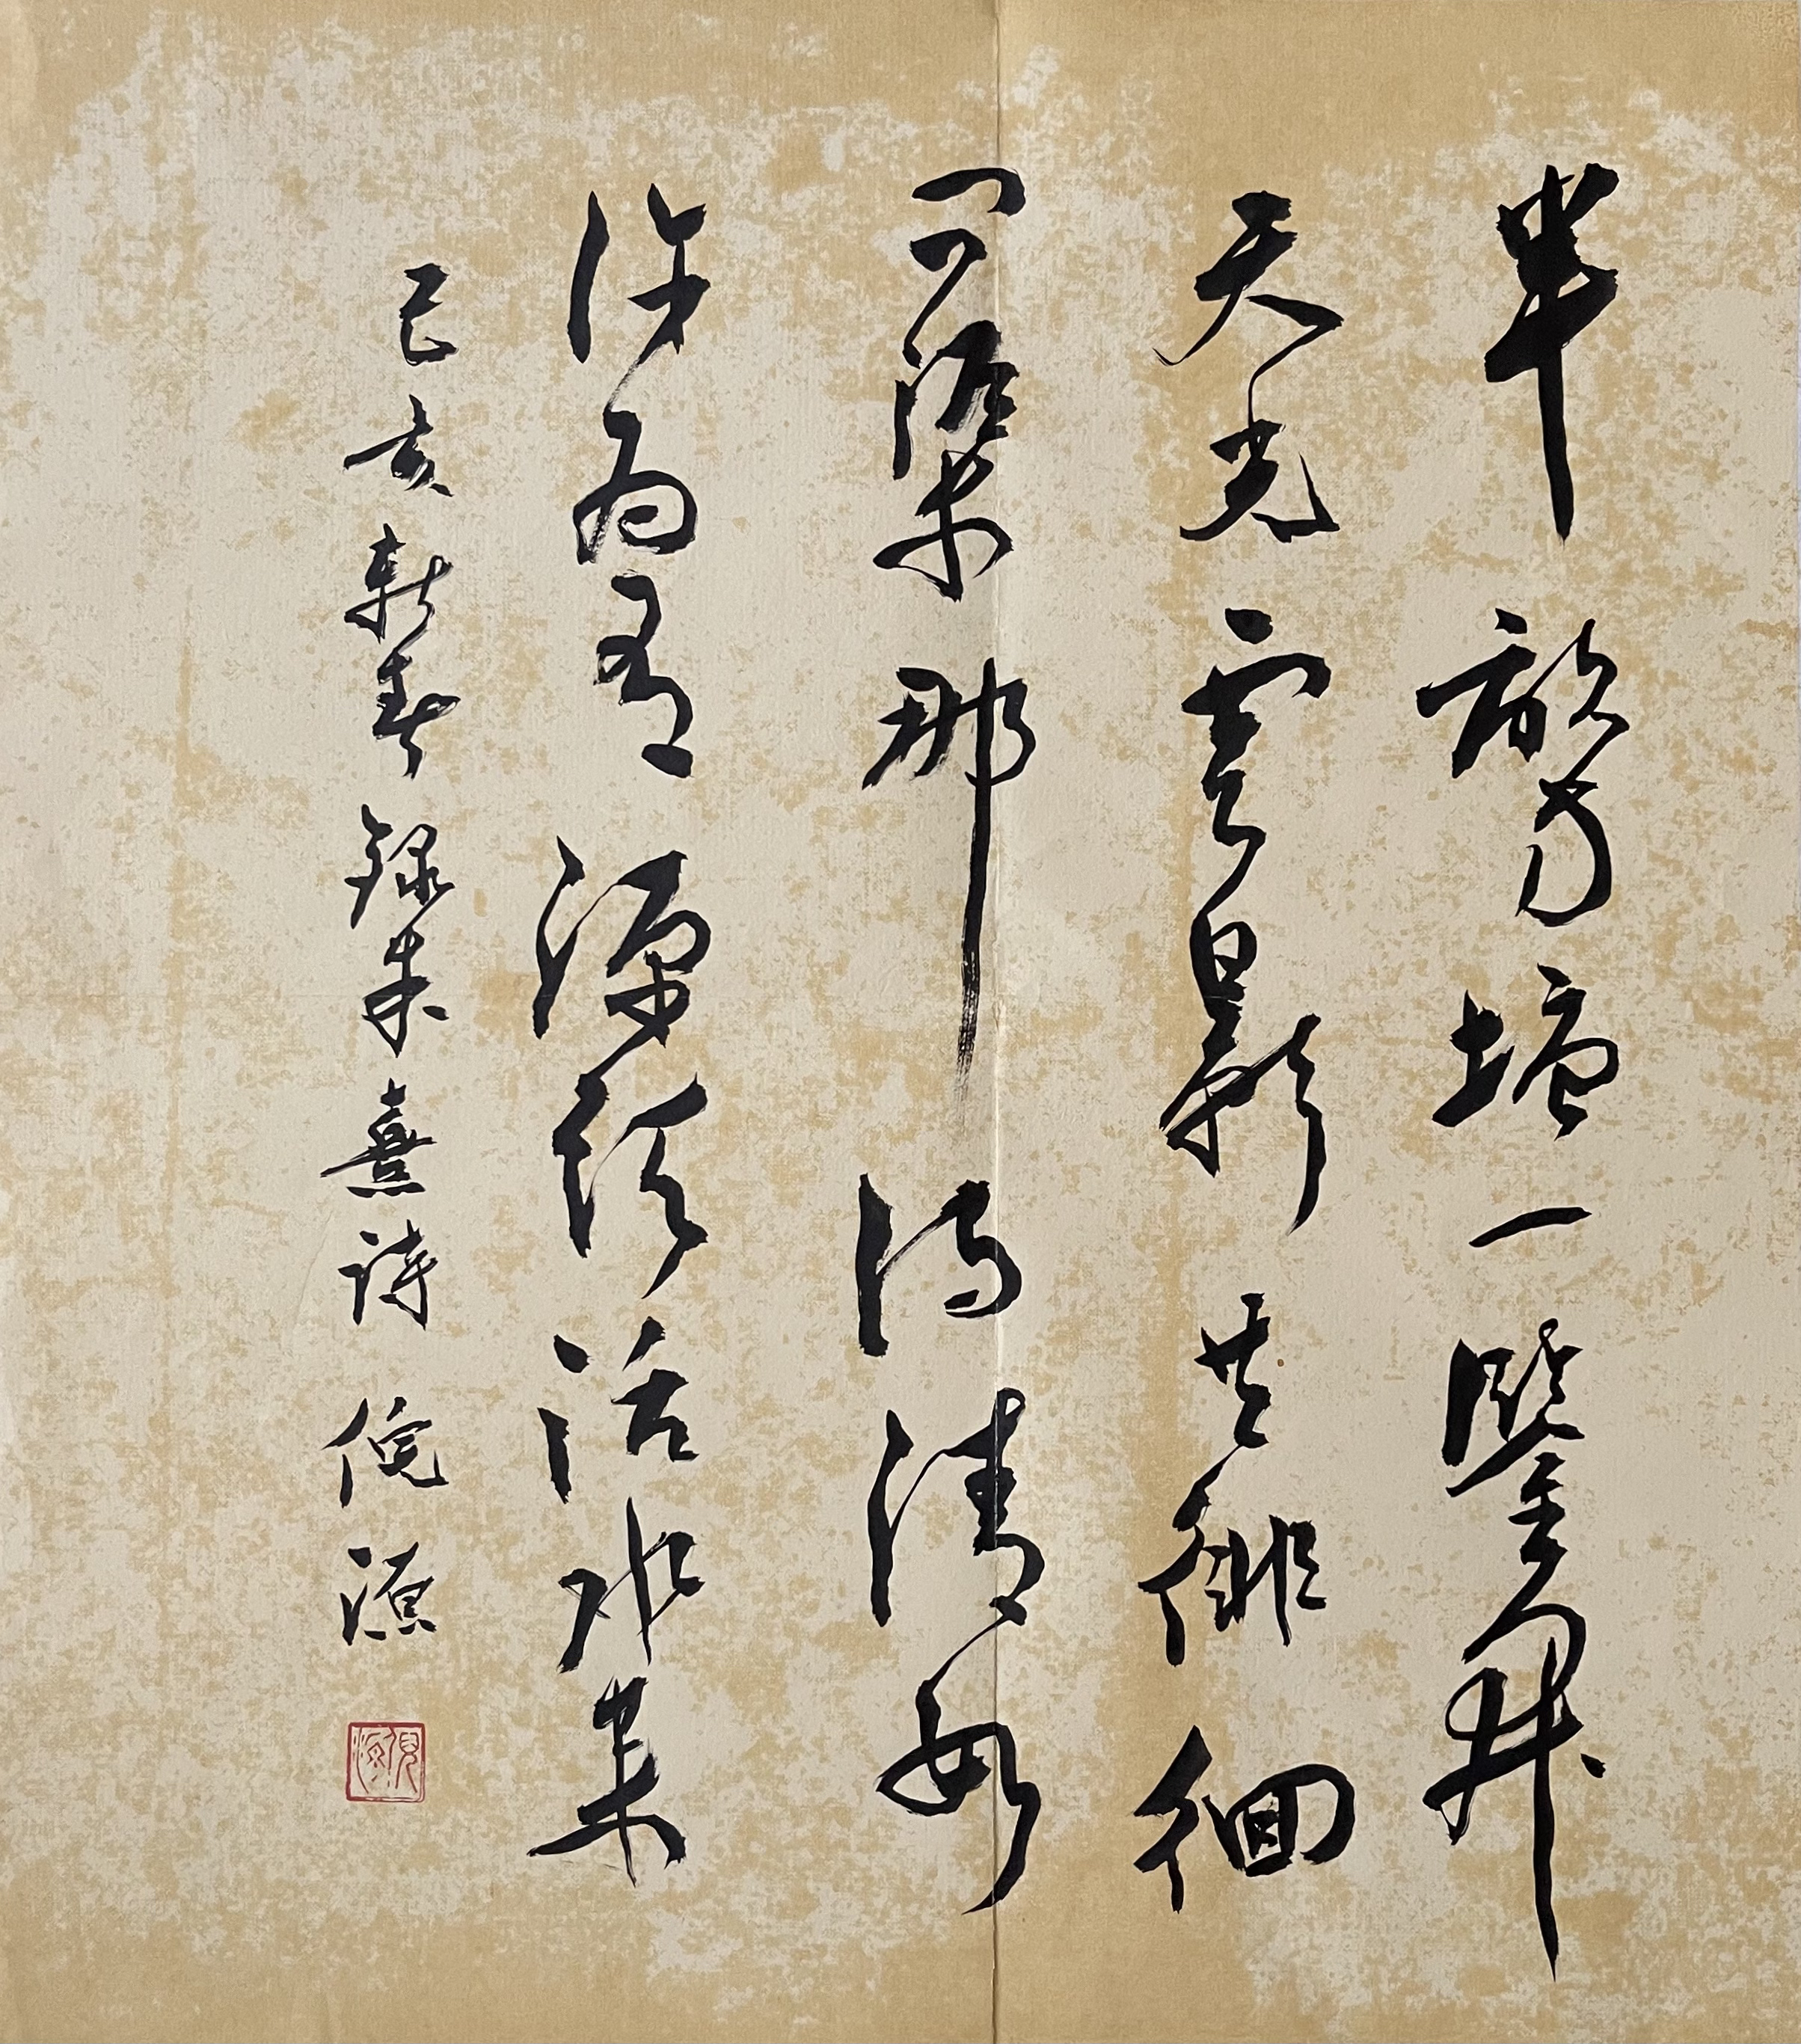 半畝方塘一鑒開
天光雲影共徘徊
問渠那得清如
許為有源頭活水來
己亥新春錄朱熹詩 倪